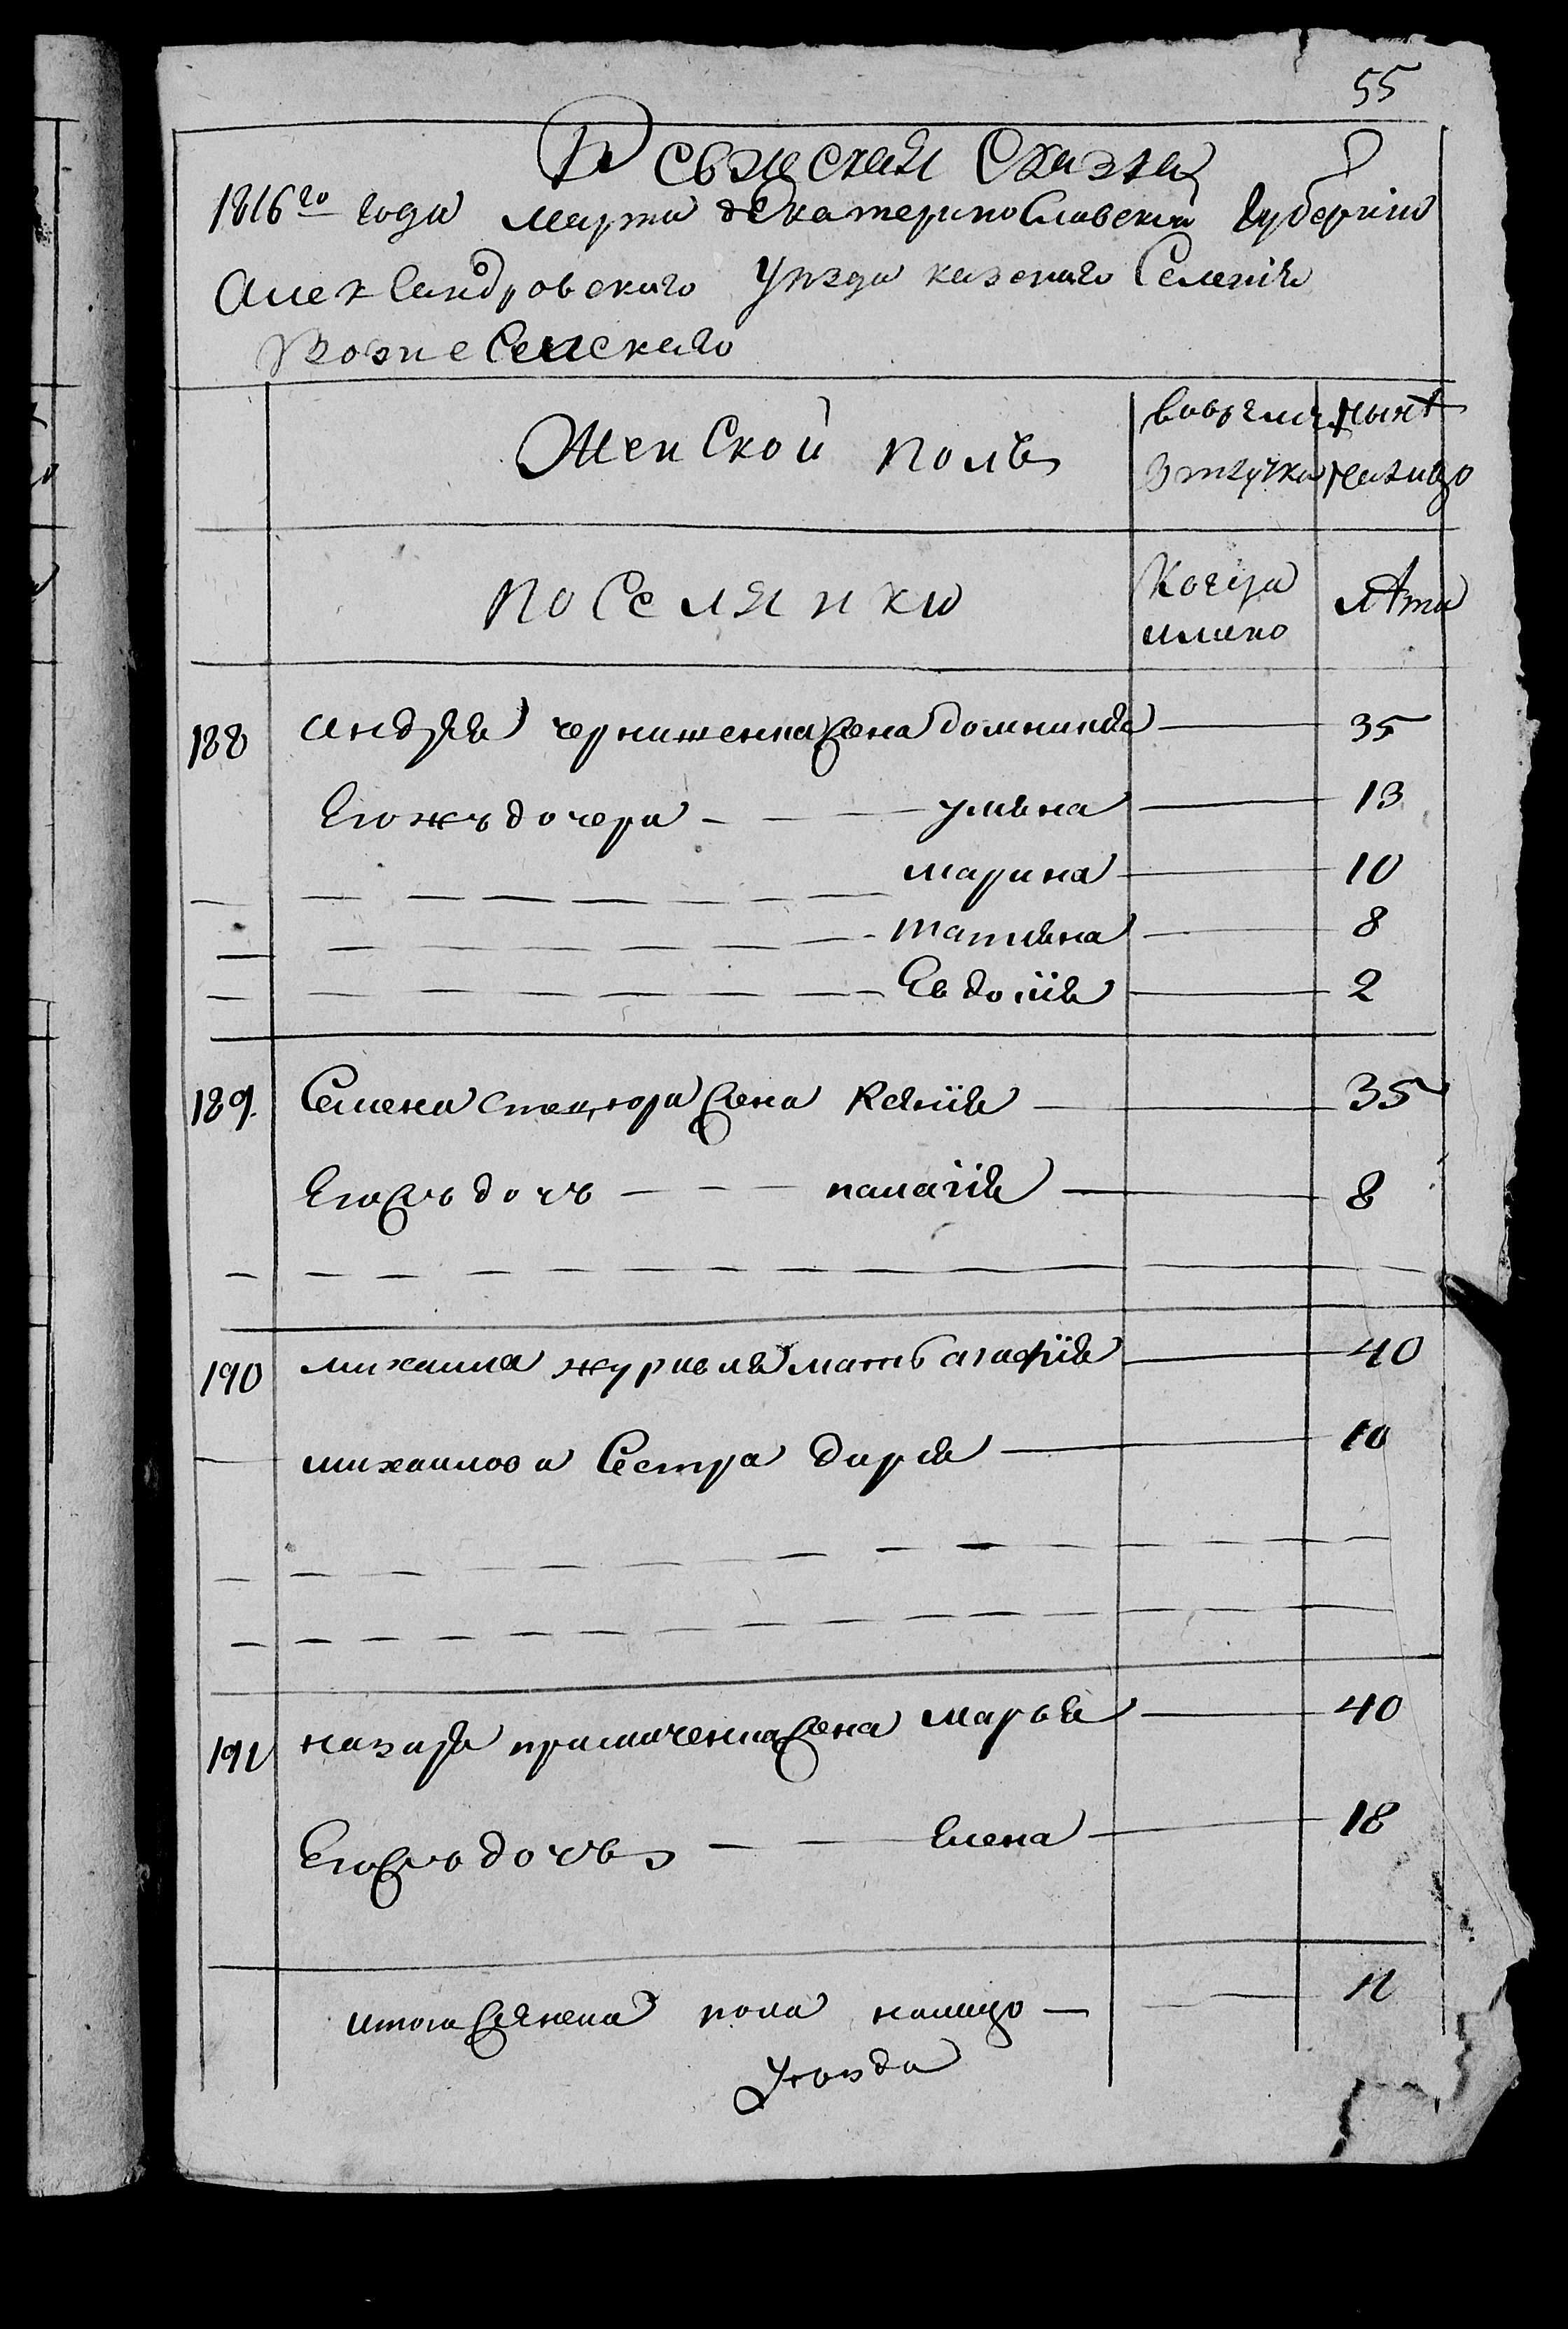 55
Ревижская Сказка
1816го года Марта Екатеринославской Губернии
Александровского уезда казенного Селенія
Вознесенскаго
Женской полъ
вовремен.
отлучки
нынѣ
налицо
поселянки
Когда
лѣта
188 андрея черниженка жена домникія 35
Его жъ дочери ульяна 13
марина 10
татияна 8
Евдокія 2
189 Семена стецюра жена ксенія 35
Его жъ дочь палагія 8
190 михаила журавля мать агафія 40
михаилова Сестра дарія 10
191 назара примаченка жена марья 40
Его жъ дочь Елена 18
итога женска пола налицо 11
уезда